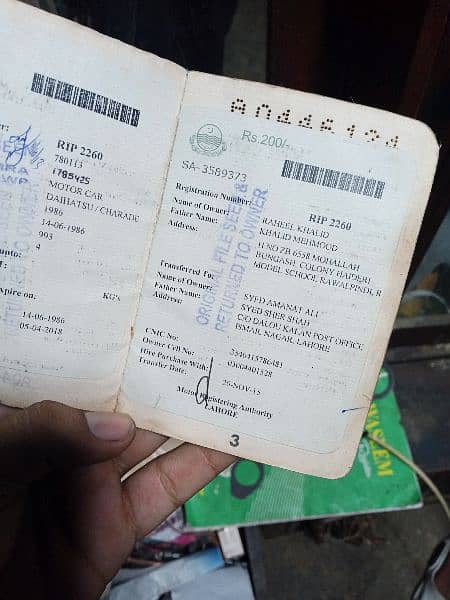 RIP 2260
780113
1785425
MOTOR CAR
DAIHATSU / CHARADE
1986
14-06-1986
993
4
xpire on:
KG's
14-06-1986
05-04-2018
A044619A
Rs.200/
SA-3589373
ORIGINAL FILE SHEET &
RETURNED TO OWNER
Registration Number: RIP 2260
Name of Owner: RAHEEL KHALID
Father Name: KHALID MEHMOOD
Address: H NO ZB 6558 MOHALLAH
BUNGASH, COLONY HAIDERI
MODEL SCHOOL RAWALPINDI, R
Transferred To:
Name of Owner: SYED AMANAT ALI
Father Name: SYED SHER SHAH
Address: C/O DALOU KALAN POST OFFICE
ISMAIL NAGAR, LAHORE
CNIC No:
Owner Cell No: 03004401328
Hire Purchase With:
Transfer Date: 26-NOV-15
Motor Registering Authority
LAHORE
3
WASEEM